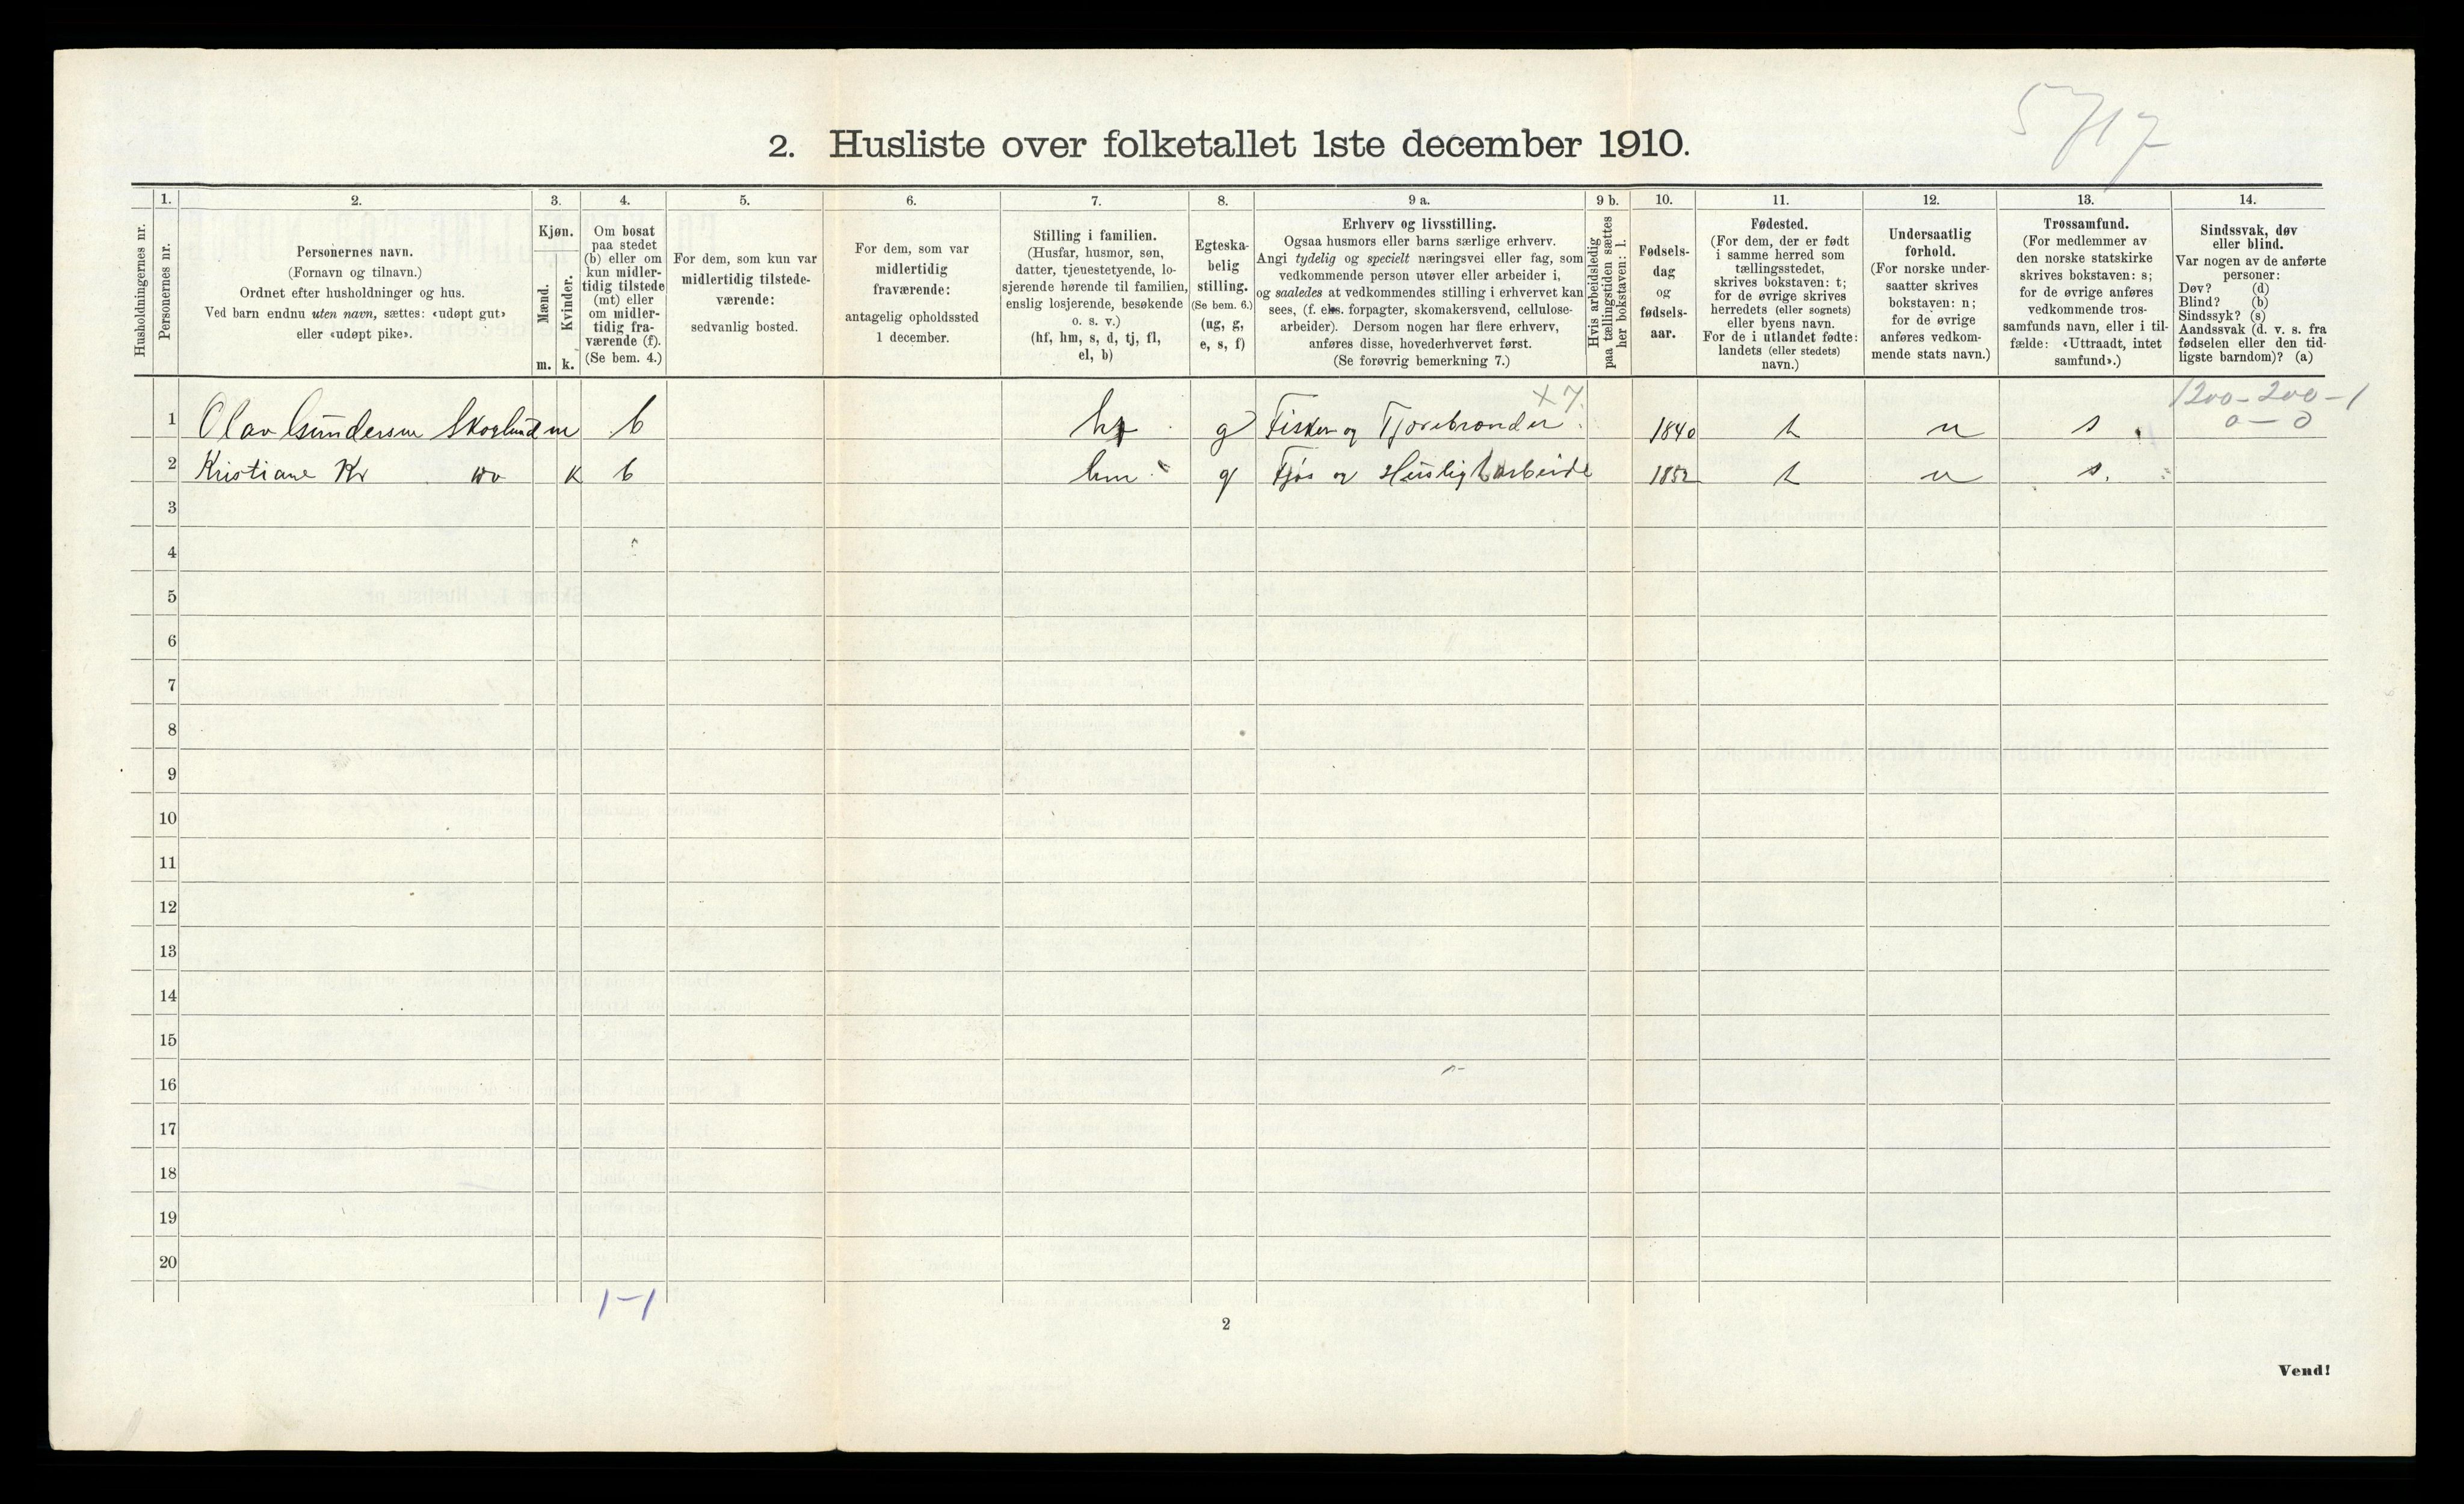 5717
2. Husliste over folketallet 1ste december 1910.
Husholdningernes nr.
1.
Personernes nr.
2.
Personernes navn.
(Fornavn og tilnavn.)
Ordnet efter husholdninger og hus.
Ved barn endnu uten navn, sættes: «udøpt gut»
eller «udøpt pike».
3.
Kjøn.
Mænd.
Kvinder.
m. k.
4.
Om bosat
paa stedet
(b) eller om
kun midler-
tidig tilstede
(mt) eller
om midler-
tidig fra-
værende (f).
(Se bem. 4.)
5.
For dem, som kun var
midlertidig tilstede-
værende:
sedvanlig bosted.
6.
For dem, som var
midlertidig
fraværende:
antagelig opholdssted
1 december.
7.
Stilling i familien.
(Husfar, husmor, søn,
datter, tjenestetyende, lo-
sjerende hørende til familien,
enslig losjerende, besøkende
o. s. v.)
(hf, hm, s, d, tj, fl,
el, b)
8.
Egteska-
belig
stilling.
(Se bem. 6.)
(ug, g,
e, s, f)
9 a.
Erhverv og livsstilling.
Ogsaa husmors eller barns særlige erhverv.
Angi tydelig og specielt næringsvei eller fag, som
vedkommende person utøver eller arbeider i,
og saaledes at vedkommendes stilling i erhvervet kan
sees, (f. eks. forpagter, skomakersvend, cellulose-
arbeider). Dersom nogen har flere erhverv,
anføres disse, hovederhvervet først.
(Se forøvrig bemerkning 7.)
9 b.
Hvis arbeidsledig
paa tællingstiden sættes
her bokstaven: l.
10.
Fødsels-
dag
og
fødsels-
aar.
11.
Fødested.
(For dem, der er født
i samme herred som
tællingsstedet,
skrives bokstaven: t;
for de øvrige skrives
herredets (eller sognets)
eller byens navn.
For de i utlandet fødte:
landets (eller stedets)
navn.)
12.
Undersaatlig
forhold.
(For norske under-
saatter skrives
bokstaven: n;
for de øvrige
anføres vedkom-
mende stats navn.)
13.
Trossamfund.
(For medlemmer av
den norske statskirke
skrives bokstaven: s;
for de øvrige anføres
vedkommende tros-
samfunds navn, eller i til-
fælde: «Uttraadt, intet
samfund».)
14.
Sindssvak, døv
eller blind.
Var nogen av de anførte
personer:
Døv? (d)
Blind? (b)
Sindssyk? (s)
Aandssvak (d. v. s. fra
fødselen eller den tid-
ligste barndom)? (a)
X 7.
1200-200-1
0-0
1 Olav Gundersen Skoglund m b hf g Fisker og 1840 t n s
2 Kristiane Kr do k b hm g Fjøs og Husligt arbeide 1852 t n s.
3
4
5
6
7
8
9
10
11
12
13
14
15
16
17
18
19
20
1-1
2
Vend!